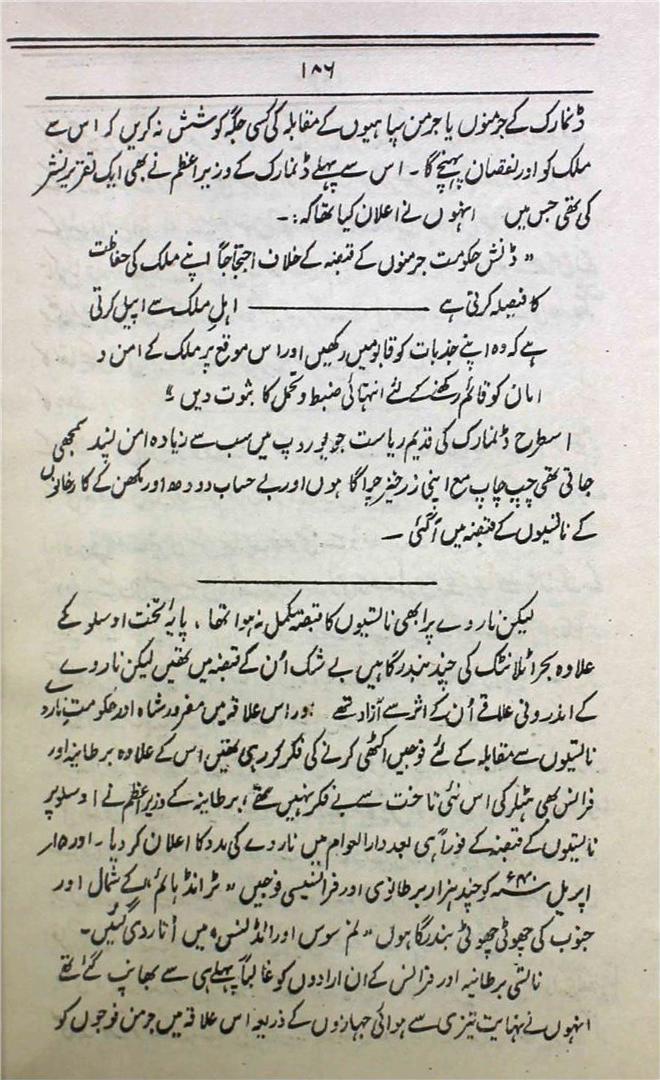 ۱۸۶
ڈنمارک کے جرمنوں یا جرمن سپاہیوں کے مقابلہ کی کسی جگہ کوشش نہ کریں کہ اس سے
ملک کو اور نقصان پہنچے گا۔ اس سے پہلے ڈنمارک کے وزیر اعظم نے بھی ایک تقریر نشر
کی تھی جس میں انہوں نے اعلان کیا تھا کہ:۔
"ڈنش حکومت جرمنوں کے قبضہ کے خلاف احتجاجاً اپنے ملک کی حفاظت
کا فیصلہ کرتی ہے ــــــــــــــــ اہلِ ملک سے اپیل کرتی
ہے کہ وہ اپنے جذبات کو قابو میں رکھیں اور اس موقع پر ملک کے امن و
امان کو قائم رکھنے کے لئے انتہائی ضبط و تحمل کا ثبوت دیں"
اسطرح ڈنمارک کی قدیم ریاست جو یوروپ میں سب سے زیادہ امن پسند سمجھی
جاتی تھی چپ چاپ مع اپنی زرخیز چراگاہوں اور بے حساب دودھ اور مکھن کے کارخانوں
کے ناتسیوں کے قبضہ میں آگئی ۔
لیکن ناروے پر ابھی ناتسیوں کا قبضہ مکمل نہ ہوا تھا، پایہ تخت اوسلو کے
علاوہ بحر اٹلانٹک کی چند بندرگاہیں بے شک اُن کے قبضہ میں تھیں لیکن ناروے
کے اندرونی علاقے اُن کے اثر سے آزاد تھے اور اس علاقہ میں مفرور شاہ اور حکومتِ ناروے
ناتسیوں سے مقابلہ کے لئے فوجیں اکٹھی کرنے کی فکر کر رہی تھیں اس کے علاوہ برطانیہ اور
فرانس بھی ہٹلر کی اس نئی تاخت سے بے فکر نہیں تھے؛ برطانیہ کے وزیر اعظم نے اوسلو پر
ناتسیوں کے قبضہ کے فوراً ہی بعد دارالعوام میں ناروے کی مدد کا اعلان کر دیا۔ اور ۱۵ر
اپریل ۴۰ء کو چند ہزار برطانوی اور فرانسیسی فوجیں "ٹرانڈ ہائم" کے شمال اور
جنوب کی چھوٹی چھوٹی بندرگاہوں "نم سوس اور انڈلنس" میں اُتار دی گئیں۔
ناتسی برطانیہ اور فرانس کے ان ارادوں کو غالباً پہلے ہی سے بھانپ گئے تھے
انہوں نے نہایت تیزی سے ہوائی جہازوں کے ذریعہ اس علاقہ میں جرمن فوجوں کو